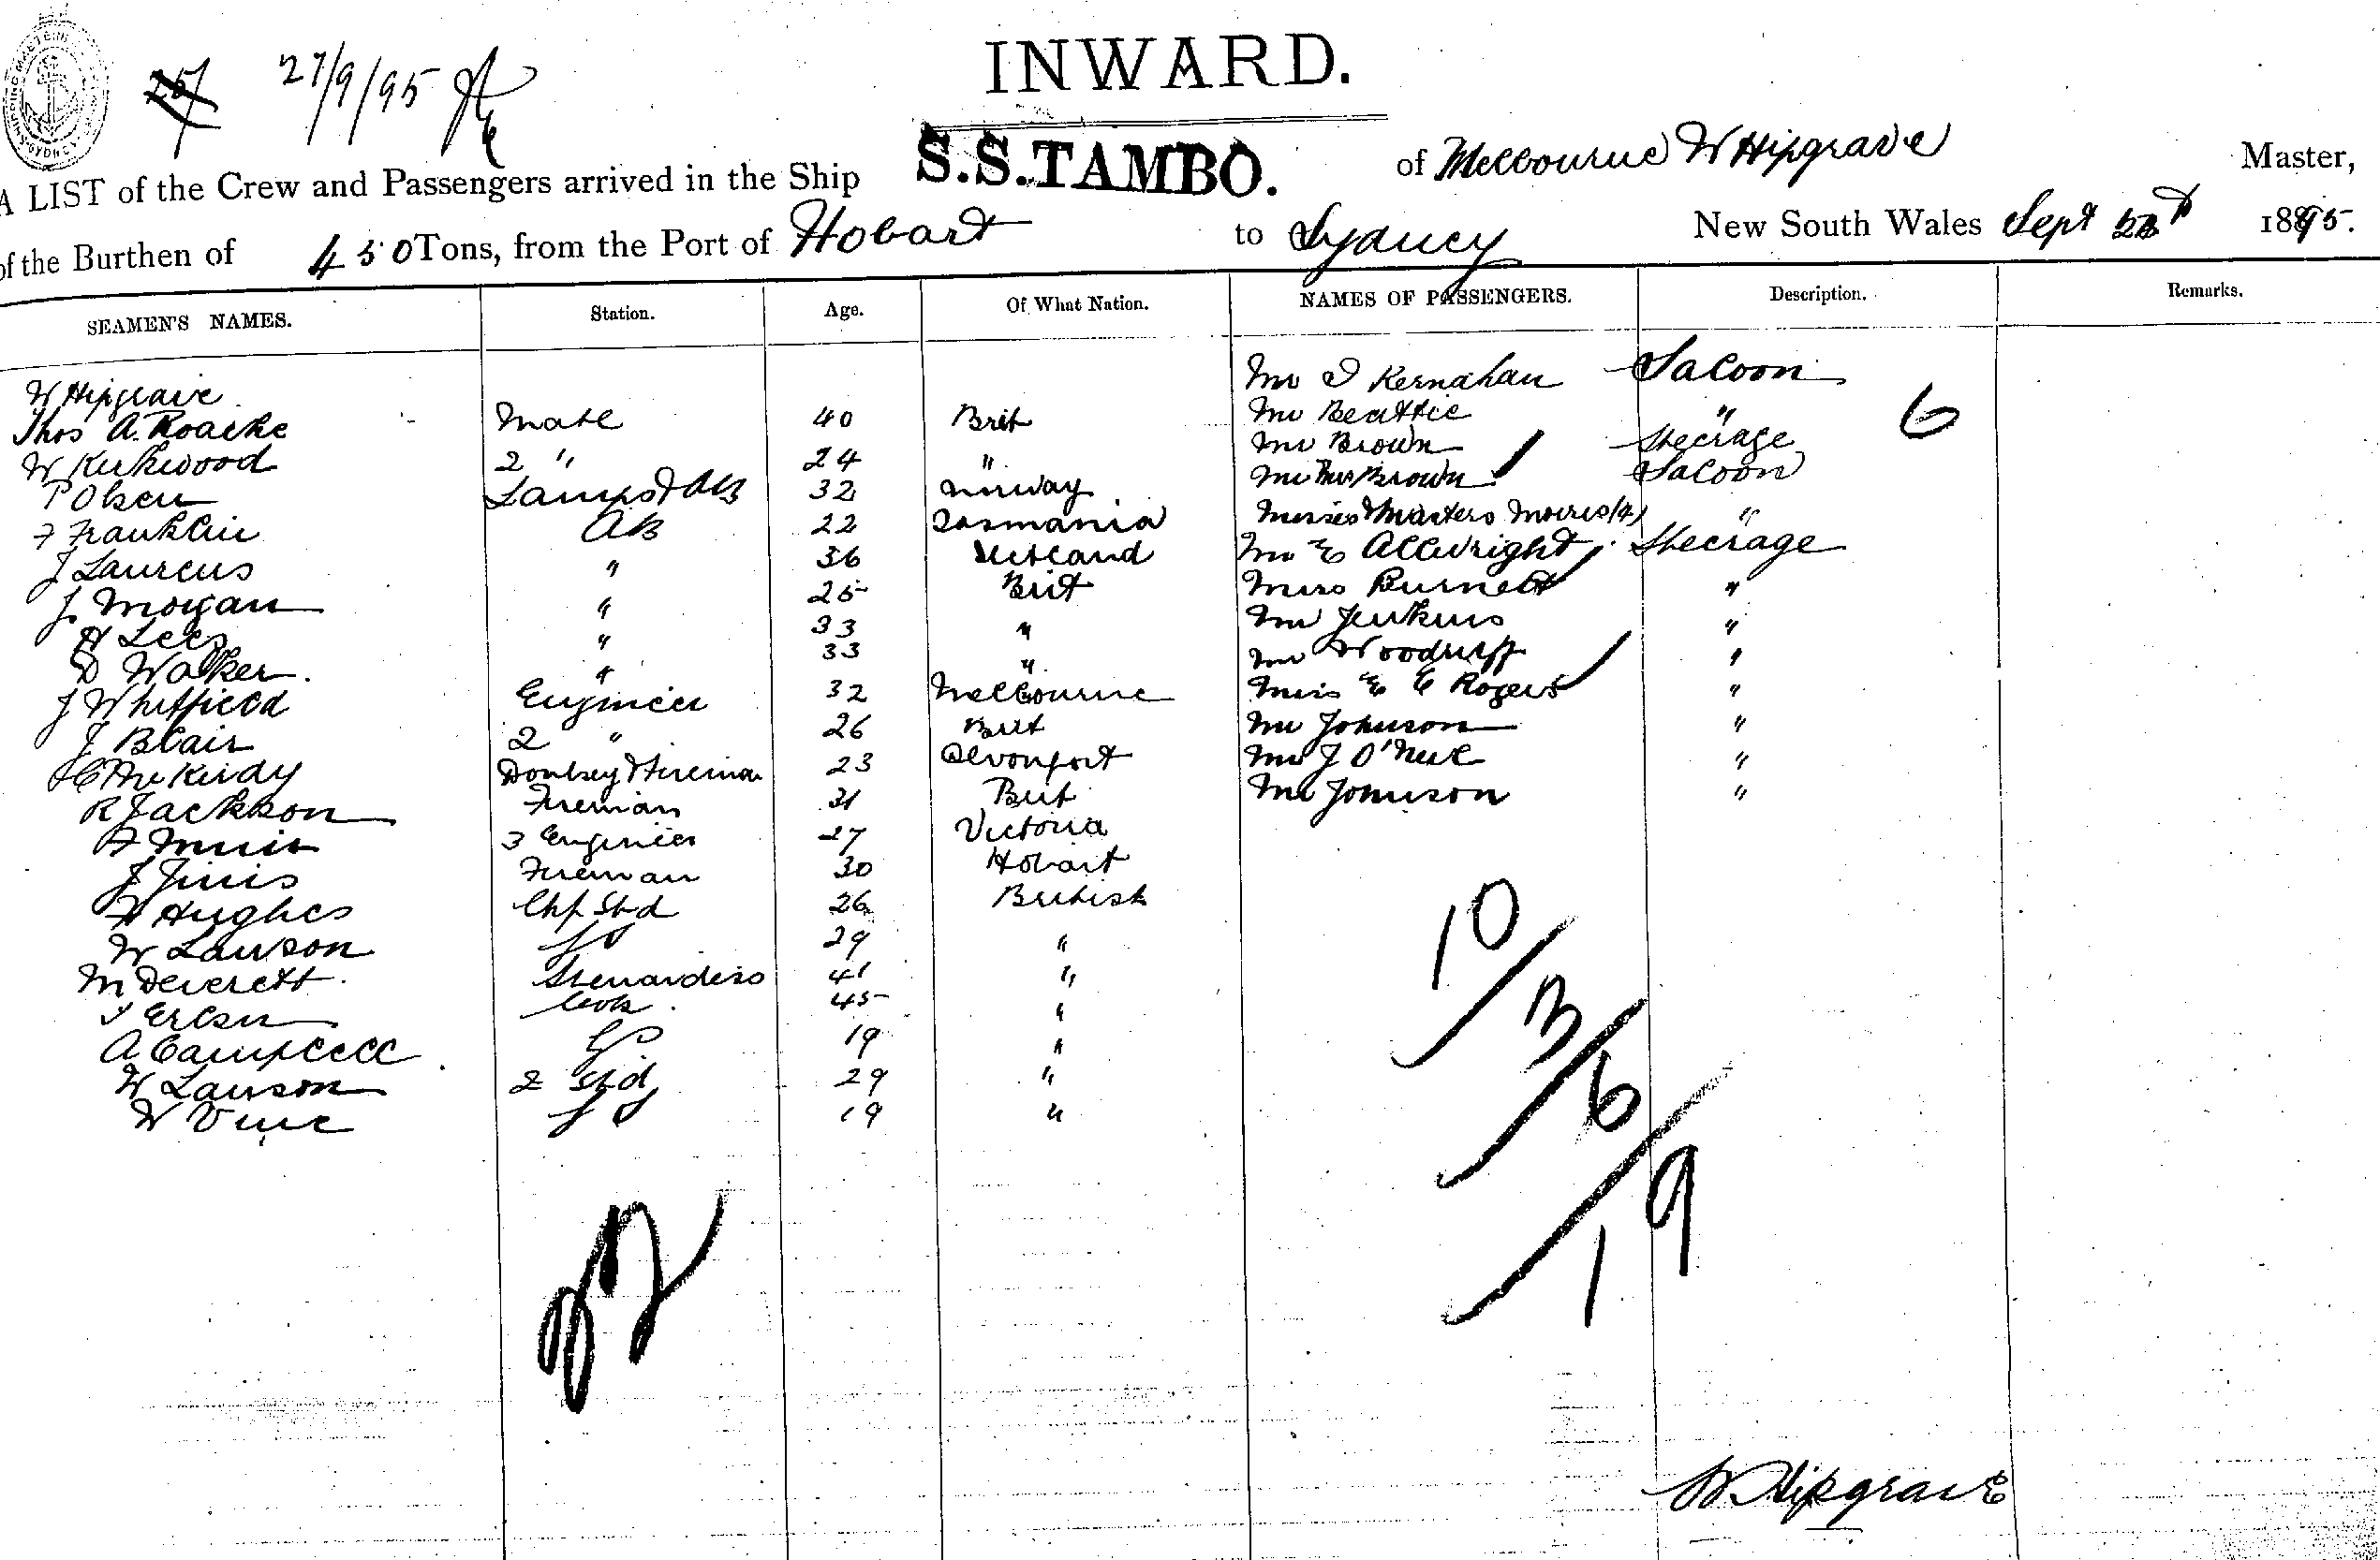 27/9/95
INWARD.
A LIST of the Crew and Passengers arrived in the Ship S.S. TAMBO. of Melbourne W Hipgrave Master,
of the Burthen of 450 Tons, from the Port of Hobart to Sydney New South Wales Sept 1895.
SEAMEN'S NAMES. Station. Age. Of What Nation. NAMES OF PASSENGERS. Description. Remarks.
W Hipgrave Mr Kernahan Saloon
Thos A. Roache Mate 40 Brit Mr Beattie " 6
W Kirkwood 2 " 24 " Mr Brown Steerage
P Olsen Lamps & AB 32 Norway Mr Mrs Brown Saloon
F Franklin AB 22 Tasmania Misses & Masters Morris (4) "
J Laurens " 36 Mr E Allwright Steerage
J. Morgan " 25 Brit Miss Burnett "
H Lees " 33 " Mr Jenkins "
D Walker. " 33 " Mr Woodruff "
J Whitfield Engineer 32 Melbourne Miss E E Rogers "
J Blair 2 " 26 Brit Mr Johnson "
McKirdy Donkey & Fireman 23 Devonport Mr J O'Neil "
R Jackson Fireman 31 Brit Mr Johnson "
F Muir 3 Engineer 27 Victoria
J Finis Fireman 30 Hobart
Hughes Chf Std 26 British
W Lawson 29 "
M Deverett. Stewardess 41 "
Cook 45 "
A Campbell 19 "
W Lawson 2 Std 29 "
W Vine 19 "
22
10/
13/
6/
19
W. Hipgrave